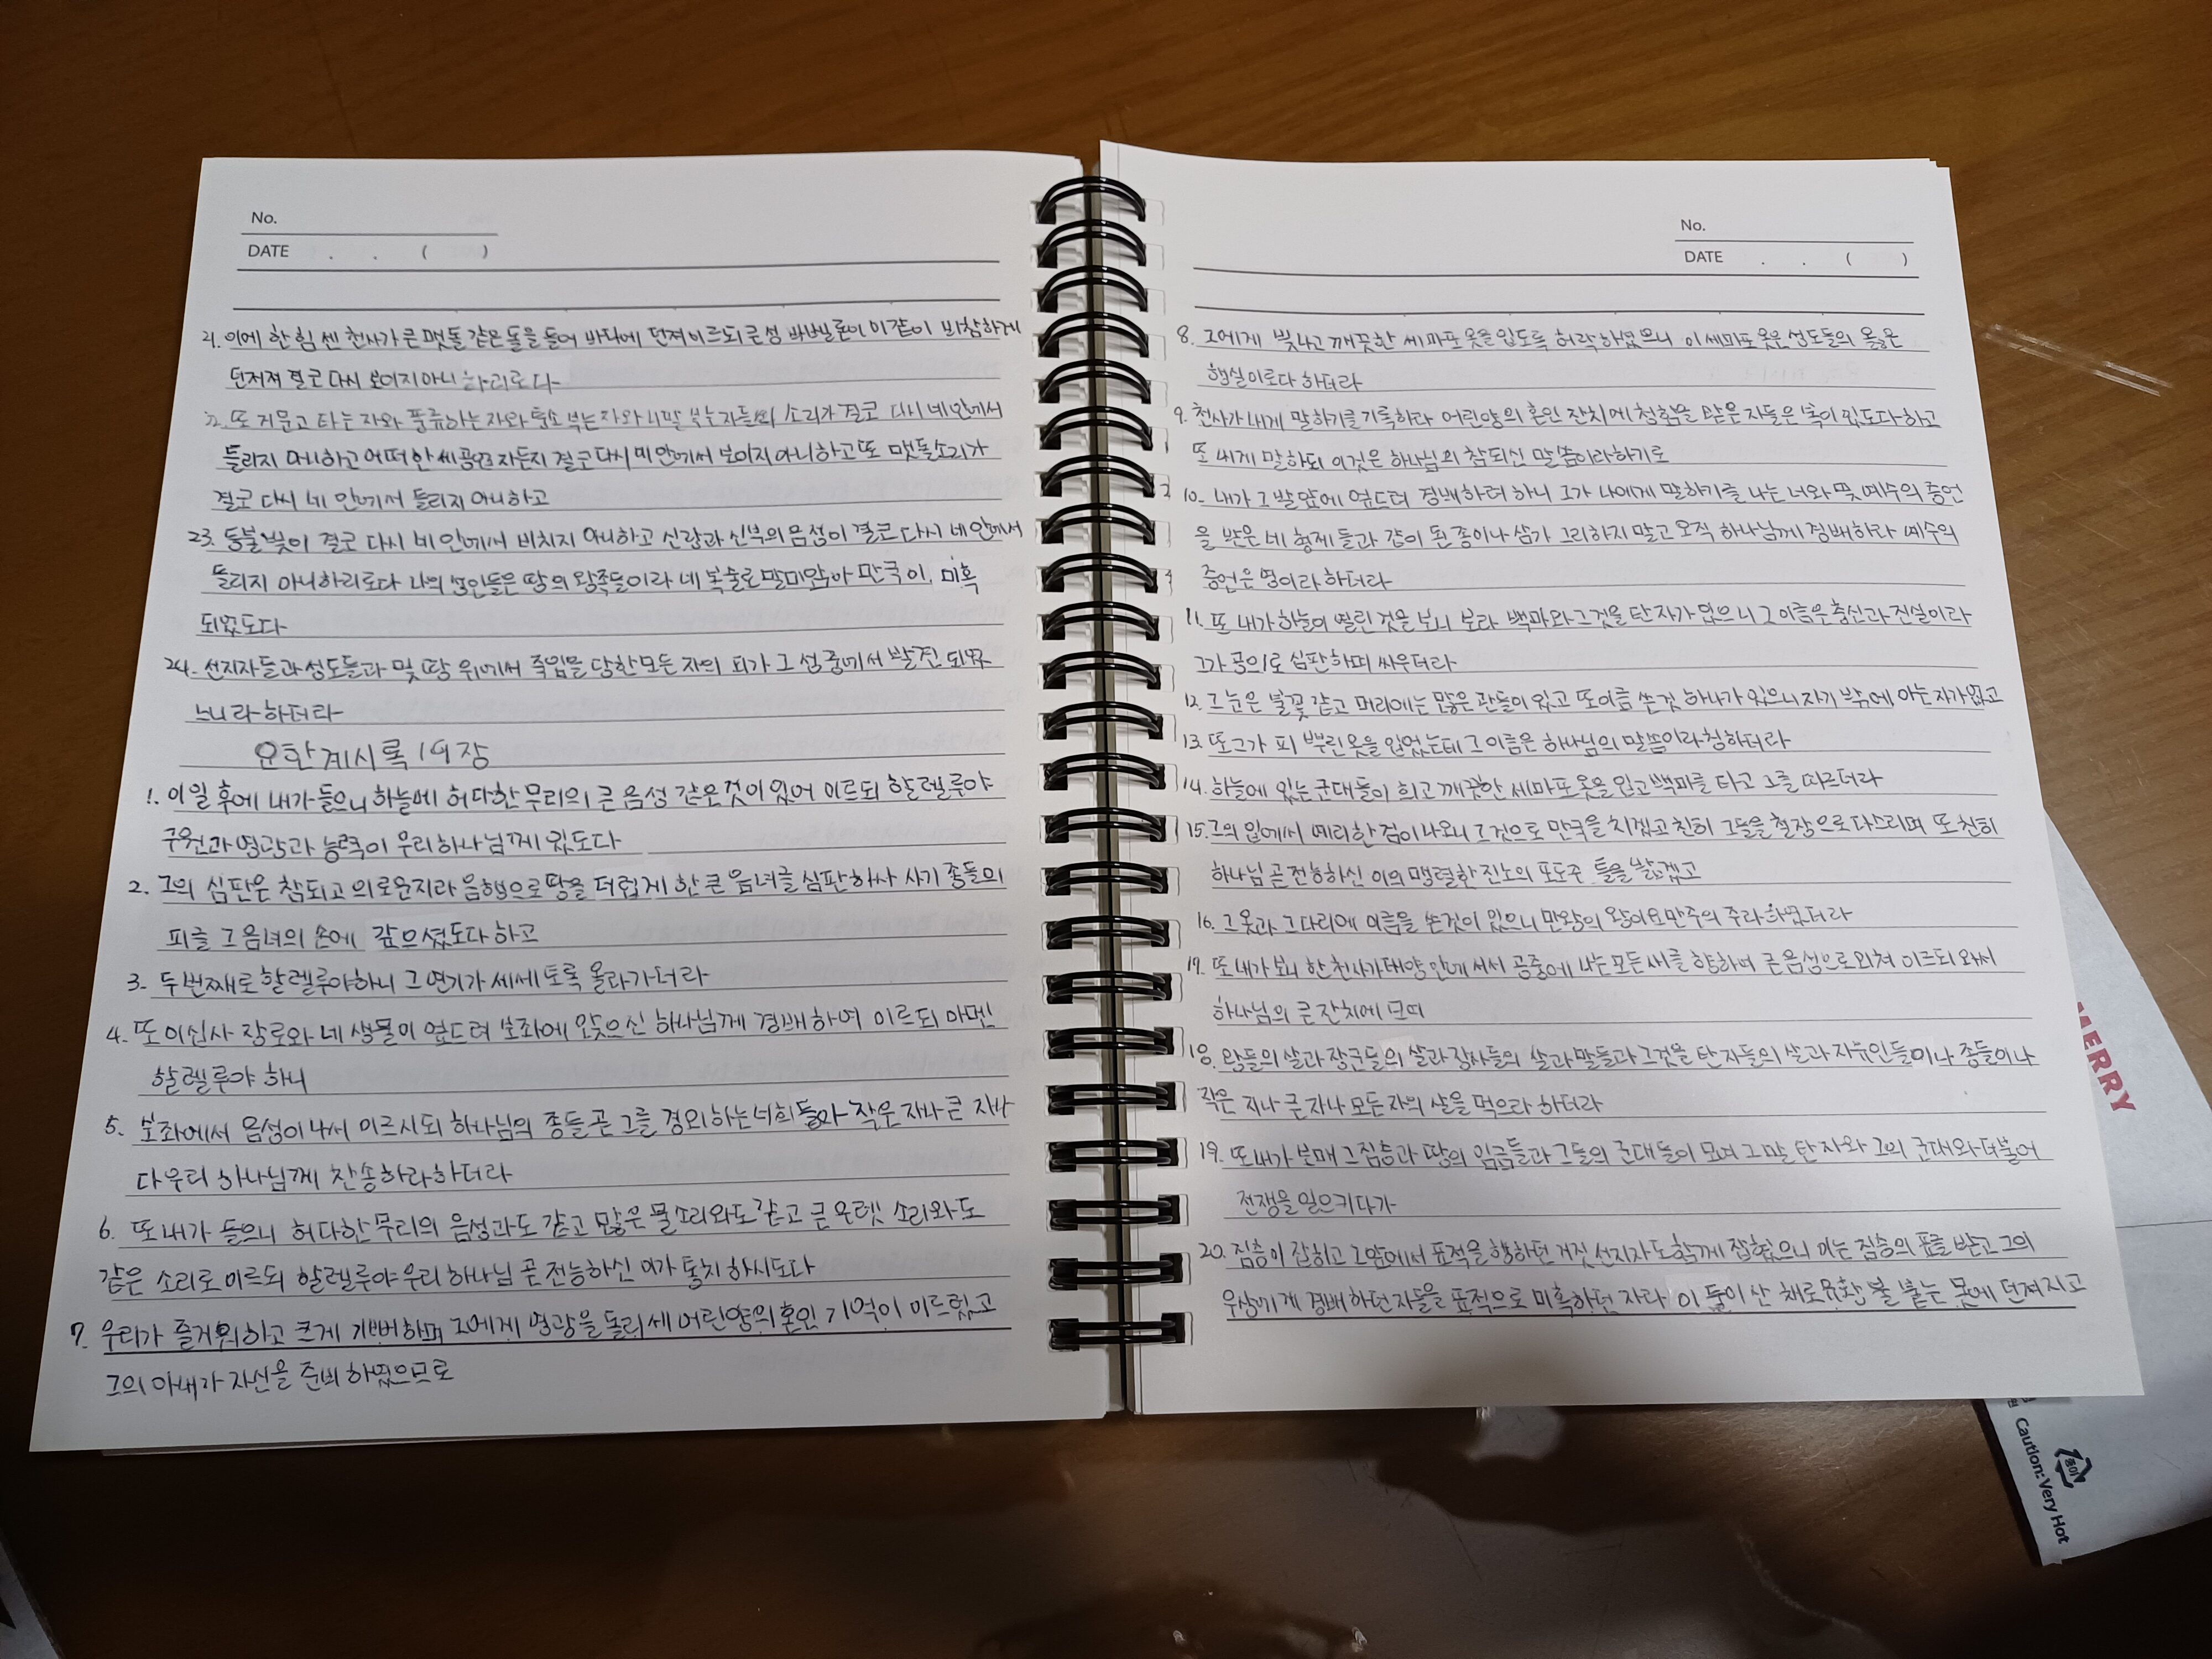 No.
DATE . . ( )
21. 이에 한 힘 센 천사가 큰 맷돌 같은 돌을 들어 바다에 던져 이르되 큰 성 바벨론이 이같이 비참하게
던져져 결코 다시 보이지 아니하리로다
22. 또 거문고 타는 자와 풍류하는 자와 퉁소 부는 자와 나팔 부는 자들의 소리가 결코 다시 네 안에서
들리지 아니하고 어떠한 세공업자든지 결코 다시 네 안에서 보이지 아니하고 또 맷돌소리가
결코 다시 네 안에서 들리지 아니하고
23. 등불 빛이 결코 다시 네 안에서 비치지 아니하고 신랑과 신부의 음성이 결코 다시 네 안에서
들리지 아니하리로다 너의 상인들은 땅의 왕족들이라 네 복술로 말미암아 만국이 미혹
되었도다
24. 선지자들과 성도들과 및 땅 위에서 죽임을 당한 모든 자의 피가 그 성 중에서 발견 되었
느니라 하더라
요한계시록 19장
1. 이 일 후에 내가 들으니 하늘에 허다한 무리의 큰 음성 같은 것이 있어 이르되 할렐루야
구원과 영광과 능력이 우리 하나님께 있도다
2. 그의 심판은 참되고 의로운지라 음행으로 땅을 더럽게 한 큰 음녀를 심판하사 자기 종들의
피를 그 음녀의 손에 갚으셨도다 하고
3. 두번째로 할렐루야하니 그 연기가 세세토록 올라가더라
4. 또 이십사 장로와 네 생물이 엎드려 보좌에 앉으신 하나님께 경배하여 이르되 아멘
할렐루야 하니
5. 보좌에서 음성이 나서 이르시되 하나님의 종들 곧 그를 경외하는 너희들아 작은 자나 큰 자나
다 우리 하나님께 찬송하라 하더라
6. 또 내가 들으니 허다한 무리의 음성과도 같고 많은 물소리와도 같고 큰 우렛 소리와도
같은 소리로 이르되 할렐루야 우리 하나님 곧 전능하신 이가 통치 하시도다
7. 우리가 즐거워하고 크게 기뻐하며 그에게 영광을 돌리세 어린양의 혼인 기약이 이르렀고
그의 아내가 자신을 준비 하였으므로
No.
DATE . . ( )
8. 그에게 빛나고 깨끗한 세마포 옷을 입도록 허락 하셨으니 이 세마포 옷은 성도들의 옳은
행실이로다 하더라
9. 천사가 내게 말하기를 기록하라 어린양의 혼인 잔치에 청함을 받은 자들은 복이 있도다 하고
또 내게 말하되 이것은 하나님의 참되신 말씀이라 하기로
10. 내가 그 발 앞에 엎드려 경배하려 하니 그가 나에게 말하기를 나는 너와 및 예수의 증언
을 받은 네 형제 들과 같이 된 종이니 삼가 그리하지 말고 오직 하나님께 경배하라 예수의
증언은 영이라 하더라
11. 또 내가 하늘이 열린 것을 보니 보라 백마와 그것을 탄 자가 있으니 그 이름은 충신과 진실이라
그가 공의로 심판하며 싸우더라
12. 그 눈은 불꽃 같고 머리에는 많은 관들이 있고 또 이름 쓴 것 하나가 있으니 자기 밖에 아는 자가 없고
13. 또 그가 피 뿌린 옷을 입었는데 그 이름은 하나님의 말씀이라 칭하더라
14. 하늘에 있는 군대들이 희고 깨끗한 세마포 옷을 입고 백마를 타고 그를 따르더라
15. 그의 입에서 예리한 검이 나오니 그것으로 만국을 치겠고 친히 그들을 철장으로 다스리며 또 친히
하나님 곧 전능하신 이의 맹렬한 진노의 포도주 틀을 밟겠고
16. 그 옷과 그 다리에 이름을 쓴 것이 있으니 만왕의 왕이요 만주의 주라 하였더라
17. 또 내가 보니 한 천사가 태양 안에 서서 공중에 나는 모든 새를 향하여 큰 음성으로 외쳐 이르되 와서
하나님의 큰 잔치에 모여
18. 왕들의 살과 장군들의 살과 장사들의 살과 말들과 그것을 탄 자들의 살과 자유인들이나 종들이나
작은 자나 큰 자나 모든 자의 살을 먹으라 하더라
19. 또 내가 보매 그 짐승과 땅의 임금들과 그들의 군대들이 모여 그 말 탄 자와 그의 군대와 더불어
전쟁을 일으키다가
20. 짐승이 잡히고 그 앞에서 표적을 행하던 거짓 선지자도 함께 잡혔으니 이는 짐승의 표를 받고 그의
우상에게 경배하던 자들을 표적으로 미혹하던 자라 이 둘이 산 채로 유황 불 붙는 못에 던져지고
MERRY
Caution: Very Hot